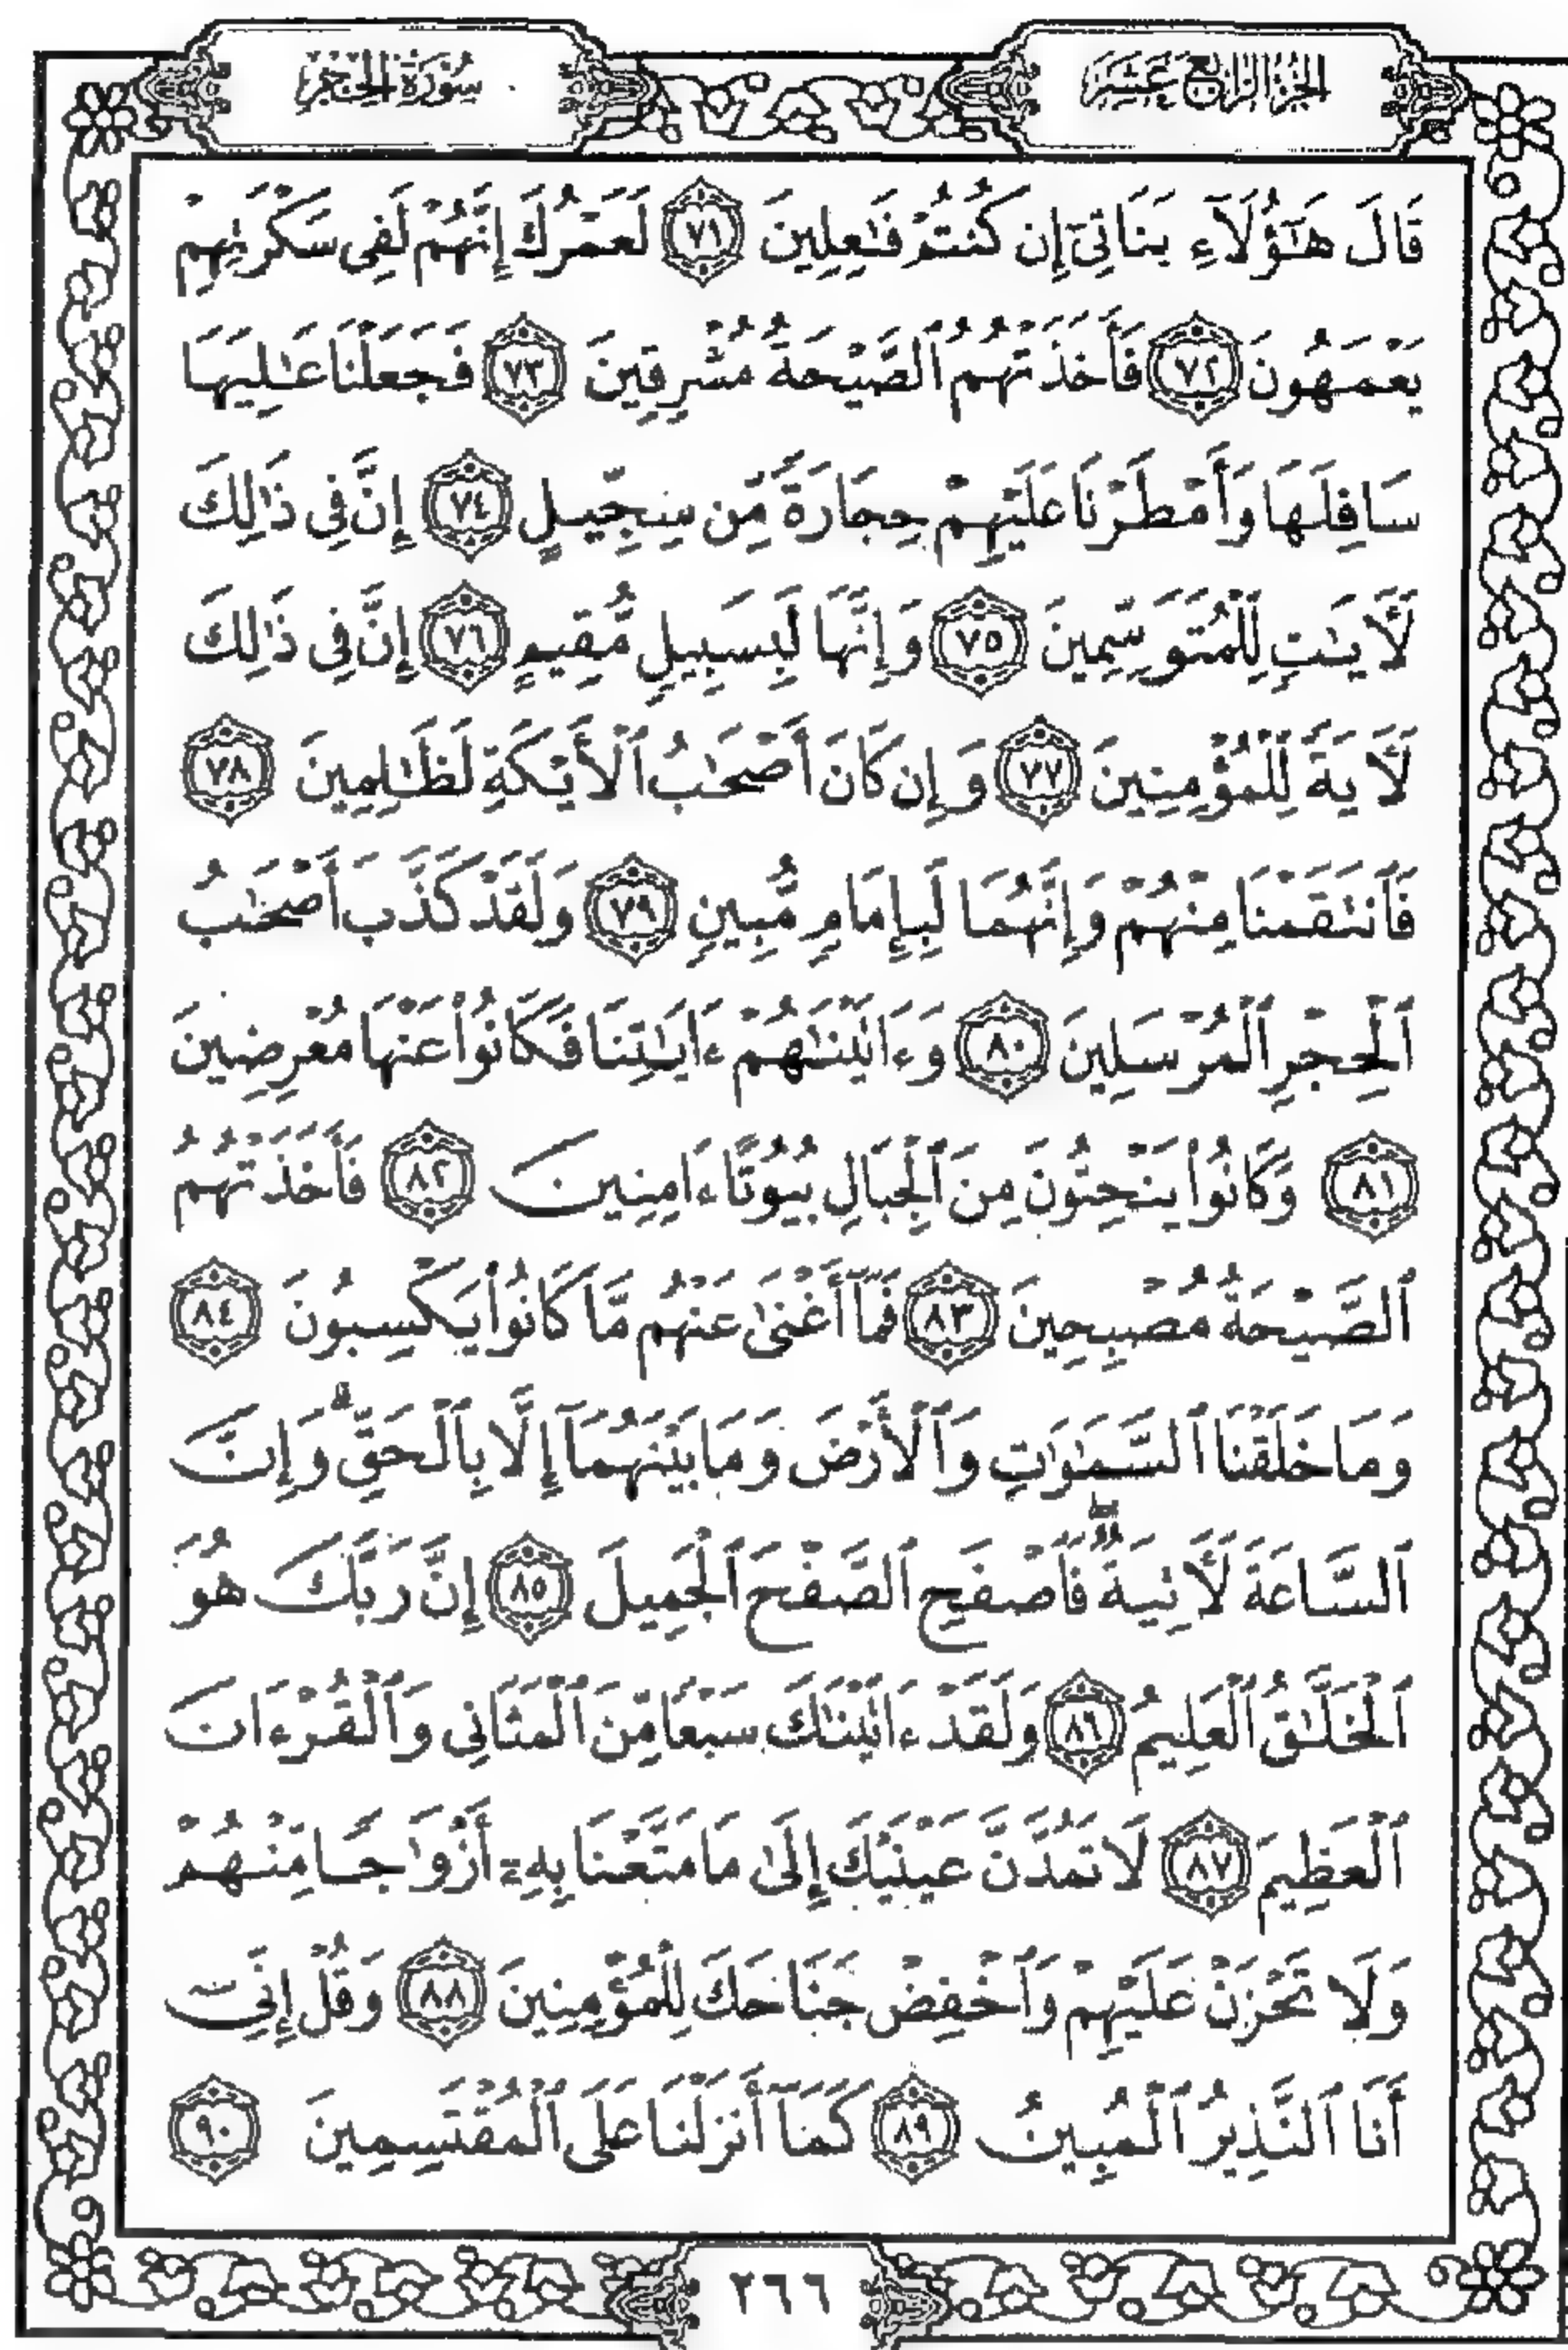 الجزء الرابع عشر
سورة الحجر
قَالَ هَٰٓؤُلَآءِ بَنَاتِىٓ إِن كُنتُمْ فَٰعِلِينَ ٧١ لَعَمْرُكَ إِنَّهُمْ لَفِى سَكْرَتِهِمْ
يَعْمَهُونَ ٧٢ فَأَخَذَتْهُمُ ٱلصَّيْحَةُ مُشْرِقِينَ ٧٣ فَجَعَلْنَا عَٰلِيَهَا
سَافِلَهَا وَأَمْطَرْنَا عَلَيْهِمْ حِجَارَةً مِّن سِجِّيلٍ ٧٤ إِنَّ فِى ذَٰلِكَ
لَـَٔايَٰتٍ لِّلْمُتَوَسِّمِينَ ٧٥ وَإِنَّهَا لَبِسَبِيلٍ مُّقِيمٍ ٧٦ إِنَّ فِى ذَٰلِكَ
لَـَٔايَةً لِّلْمُؤْمِنِينَ ٧٧ وَإِن كَانَ أَصْحَٰبُ ٱلْأَيْكَةِ لَظَٰلِمِينَ ٧٨
فَٱنتَقَمْنَا مِنْهُمْ وَإِنَّهُمَا لَبِإِمَامٍ مُّبِينٍ ٧٩ وَلَقَدْ كَذَّبَ أَصْحَٰبُ
ٱلْحِجْرِ ٱلْمُرْسَلِينَ ٨٠ وَءَاتَيْنَٰهُمْ ءَايَٰتِنَا فَكَانُوا۟ عَنْهَا مُعْرِضِينَ
٨١ وَكَانُوا۟ يَنْحِتُونَ مِنَ ٱلْجِبَالِ بُيُوتًا ءَامِنِينَ ٨٢ فَأَخَذَتْهُمُ
ٱلصَّيْحَةُ مُصْبِحِينَ ٨٣ فَمَآ أَغْنَىٰ عَنْهُم مَّا كَانُوا۟ يَكْسِبُونَ ٨٤
وَمَا خَلَقْنَا ٱلسَّمَٰوَٰتِ وَٱلْأَرْضَ وَمَا بَيْنَهُمَآ إِلَّا بِٱلْحَقِّ ۗ وَإِنَّ
ٱلسَّاعَةَ لَـَٔاتِيَةٌ ۖ فَٱصْفَحِ ٱلصَّفْحَ ٱلْجَمِيلَ ٨٥ إِنَّ رَبَّكَ هُوَ
ٱلْخَلَّٰقُ ٱلْعَلِيمُ ٨٦ وَلَقَدْ ءَاتَيْنَٰكَ سَبْعًا مِّنَ ٱلْمَثَانِى وَٱلْقُرْءَانَ
ٱلْعَظِيمَ ٨٧ لَا تَمُدَّنَّ عَيْنَيْكَ إِلَىٰ مَا مَتَّعْنَا بِهِۦٓ أَزْوَٰجًا مِّنْهُمْ
وَلَا تَحْزَنْ عَلَيْهِمْ وَٱخْفِضْ جَنَاحَكَ لِلْمُؤْمِنِينَ ٨٨ وَقُلْ إِنِّىٓ
أَنَا ٱلنَّذِيرُ ٱلْمُبِينُ ٨٩ كَمَآ أَنزَلْنَا عَلَى ٱلْمُقْتَسِمِينَ ٩٠
٢٦٦